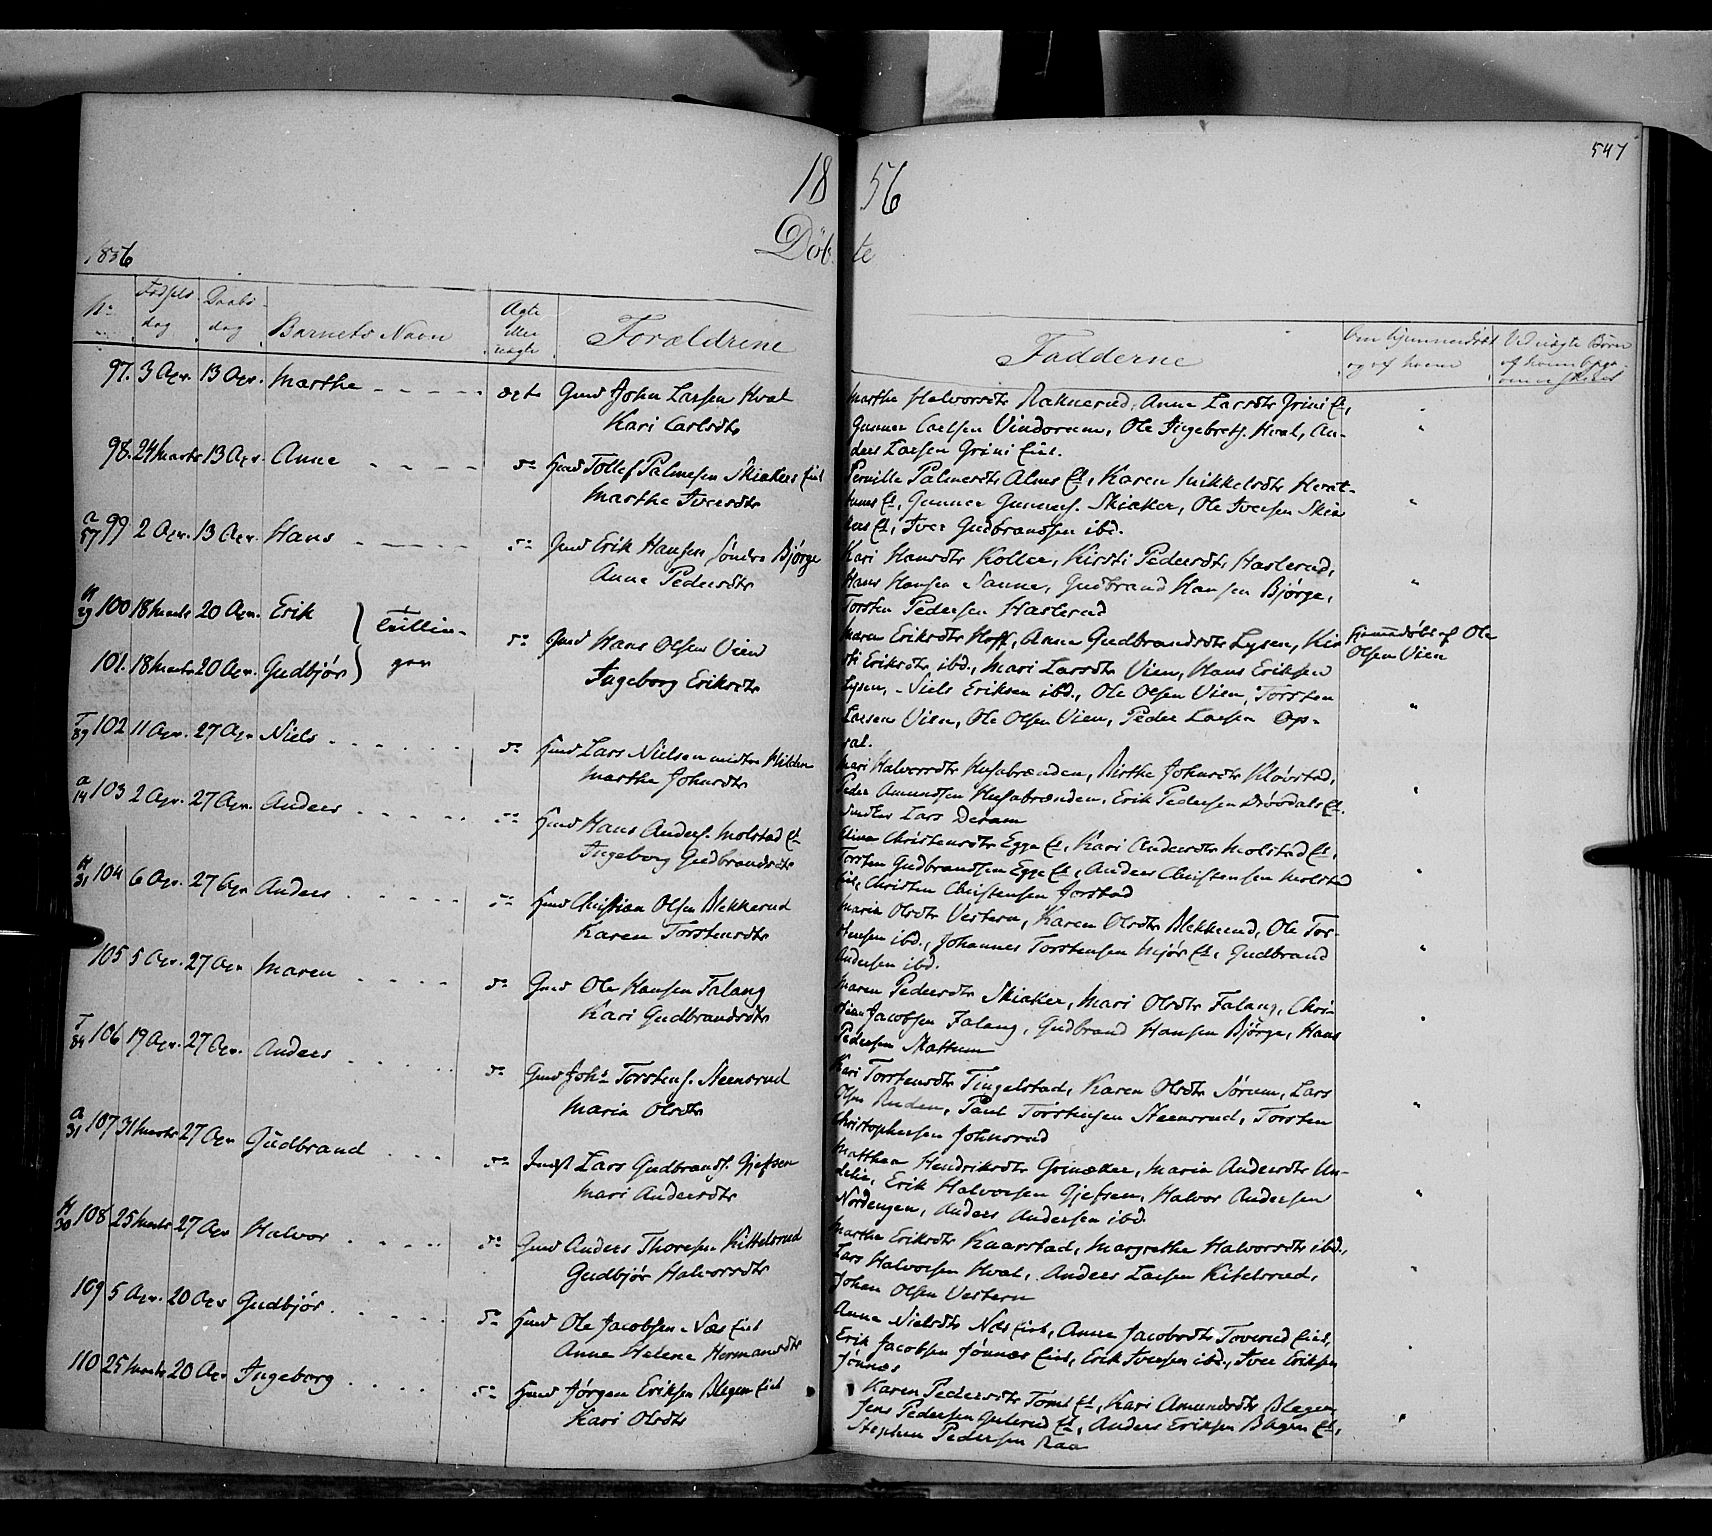 547
18 56
Döb te
1856
No Fødsels dag Daabs dag Barnets Navn Ægte eller uægte Forældrene
Fadderne Om hjemmedøbt og af hvem Ved uægte Børn af hvem
97. 3 Apr. 13 Apr. Marthe - - - - - ægte Gmd John Larsen Hval
Kari Carlsdtr
Marthe Halvorsdtr Raknerud, Anne Larsdtr Grini Et,
Gunner Carlsen Vindorum, Ole Ingebretf. Hval, An-
ders Larsen Grini Eiet.
98. 24 Marts 13 Apr. Anne - - - - - do Hmd Tollef Palmesen Skiakers Eiet
Marthe Iversdtr
Pernille Palmesdtr Alms Et, Karen Mikkelsdtr
Et, Gunner Gunnerf. Skiaker, Ole Iversen Skia
kers Et, Iver Gudbrandsen ibd.
a 57 99 2 Apr. 13 Apr. Hans - - - - - do Gmd Erik Hansen Søndre Bjørge
Anne Pedersdtr
Kari Hansdtr Koller, Kirsti Pedersdtr Haslerud,
Hans Hansen Sanne, Gudbrand Hansen Bjørge,
Torsten Pedersen Haslerud
H 29 100 18 Marts 20 Apr. Erik } Tvillin- do Gmd Hans Olsen Vien
101. 18 Marts 20 Apr. Gudbjør } ger
Ingeborg Eriksdtr
Maren Eriksdtr Hoff, Anne Gudbrandsdtr Lysen, Kir
sti Eriksdtr ibd., Mari Larsdtr Vien, Hans Eriksen
Lysen, Niels Eriksen ibd., Ole Olsen Vien, Torsten
Larsen Vien, Ole Olsen Vien, Peder Larsen Op-
sal.
Hjemmedøbt af Ole
Olsen Vien
T 89 102 11 Apr. 27 Apr. Niels - - - - - do Hmd Lars Nielsen midtre
Marthe Johnsdtr
Mari Halvorsdtr Husabrænden, Birthe Johnsdtr Kløvstad,
Peder Amundsen Husabrænden, Erik Pedersen Et.
Lars
a 14 103 2 Apr. 27 Apr. Anders - - - - - do Hmd Hans Andersf. Molstad Et
Ingeborg Gudbrandsdtr
Christensdtr Egge Et, Kari Andersdtr Molstad Et,
Torsten Gudbrandsen Egge Et, Anders Christensen Molstad
Eiet, Christen Christensen Jorstad
H 31 104 6 Apr. 27 Apr Anders - - - - - do Hmd Christian Olsen Blekkerud
Karen Torstensdtr
Maria Olsdtr Vestern, Karen Olsdtr Blekkerud, Ole Tor-
stensen ibd., Johannes Torstensen Mjør Et, Gudbrand
Andersen ibd.
105 5 Apr. 27 Apr Maren - - - - - do Gmd Ole Hansen Falang
Kari Gudbrandsdtr
Maren Pedersdtr Skiaker, Mari Olsdtr Falang, Chri-
stian Jacobsen Falang, Gudbrand Hansen Bjørge, Hans
Pedersen
T 84 106 19 Apr. 27 Apr. Anders - - - - - do Gmd Johs Torstenf. Steensrud
Maria Olsdtr
Kari Torstensdtr Tingelstad, Karen Olsdtr Sørum, Lars
Olsen Ruden, Paul Torstensen Steensrud, Torsten
Christophersen Johnsrud
a 31 107 31 Marts 27 Apr Gudbrand - - - do Lars Gudbrandf. Gjefsen
Mari Andersdtr
Matthea Hendriksdtr Grinaker, Maria Andersdtr Un-
delien, Erik Halvorsen Gjefsen, Halvor Andersen
Nordengen, Anders Andersen ibd.
H 30 108 25 Marts 27 Apr Halvor - - - - do Gmd Anders Thoresen Kittelsrud
Gudbjør Halvorsdtr
Marthe Eriksdtr Kaarstad, Margrethe Halvorsdtr ibd.,
Lars Halvorsen Hval, Anders Larsen Kitelsrud,
Johan Olsen Vestern
109 5 Apr. 20 Apr Gudbjør - - - - do Hmd Ole Jacobsen Næs Eiet
Anne Helene Hermansdtr
Anne Nielsdtr Næs Eiet, Anne Jacobsdtr Toverud Eiet,
Erik Jacobsen Jønnæs Eiet, Erik Iversen ibd., Iver Eriksen
Jønnæs
110 25 Marts 20 Apr Ingeborg - - - - do Hmd Jørgen Eriksen Blegen Eiet
Kari Olsdtr
Karen Pedersdtr Toms Et, Kari Amundsdtr Blegen
Jens Pedersen Gulerud Et, Anders Eriksen Blegen Et,
Stephen Pedersen Raa